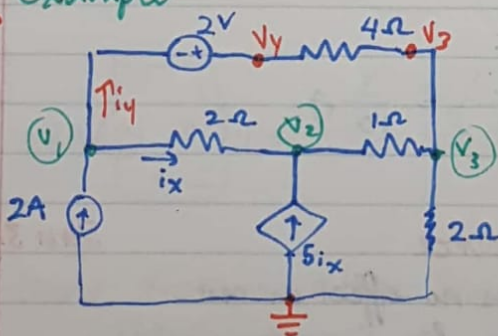 Example
2V
Vy
4Ω
V3
iy
V1
2Ω
V2
1Ω
V3
ix
2A
5ix
2Ω